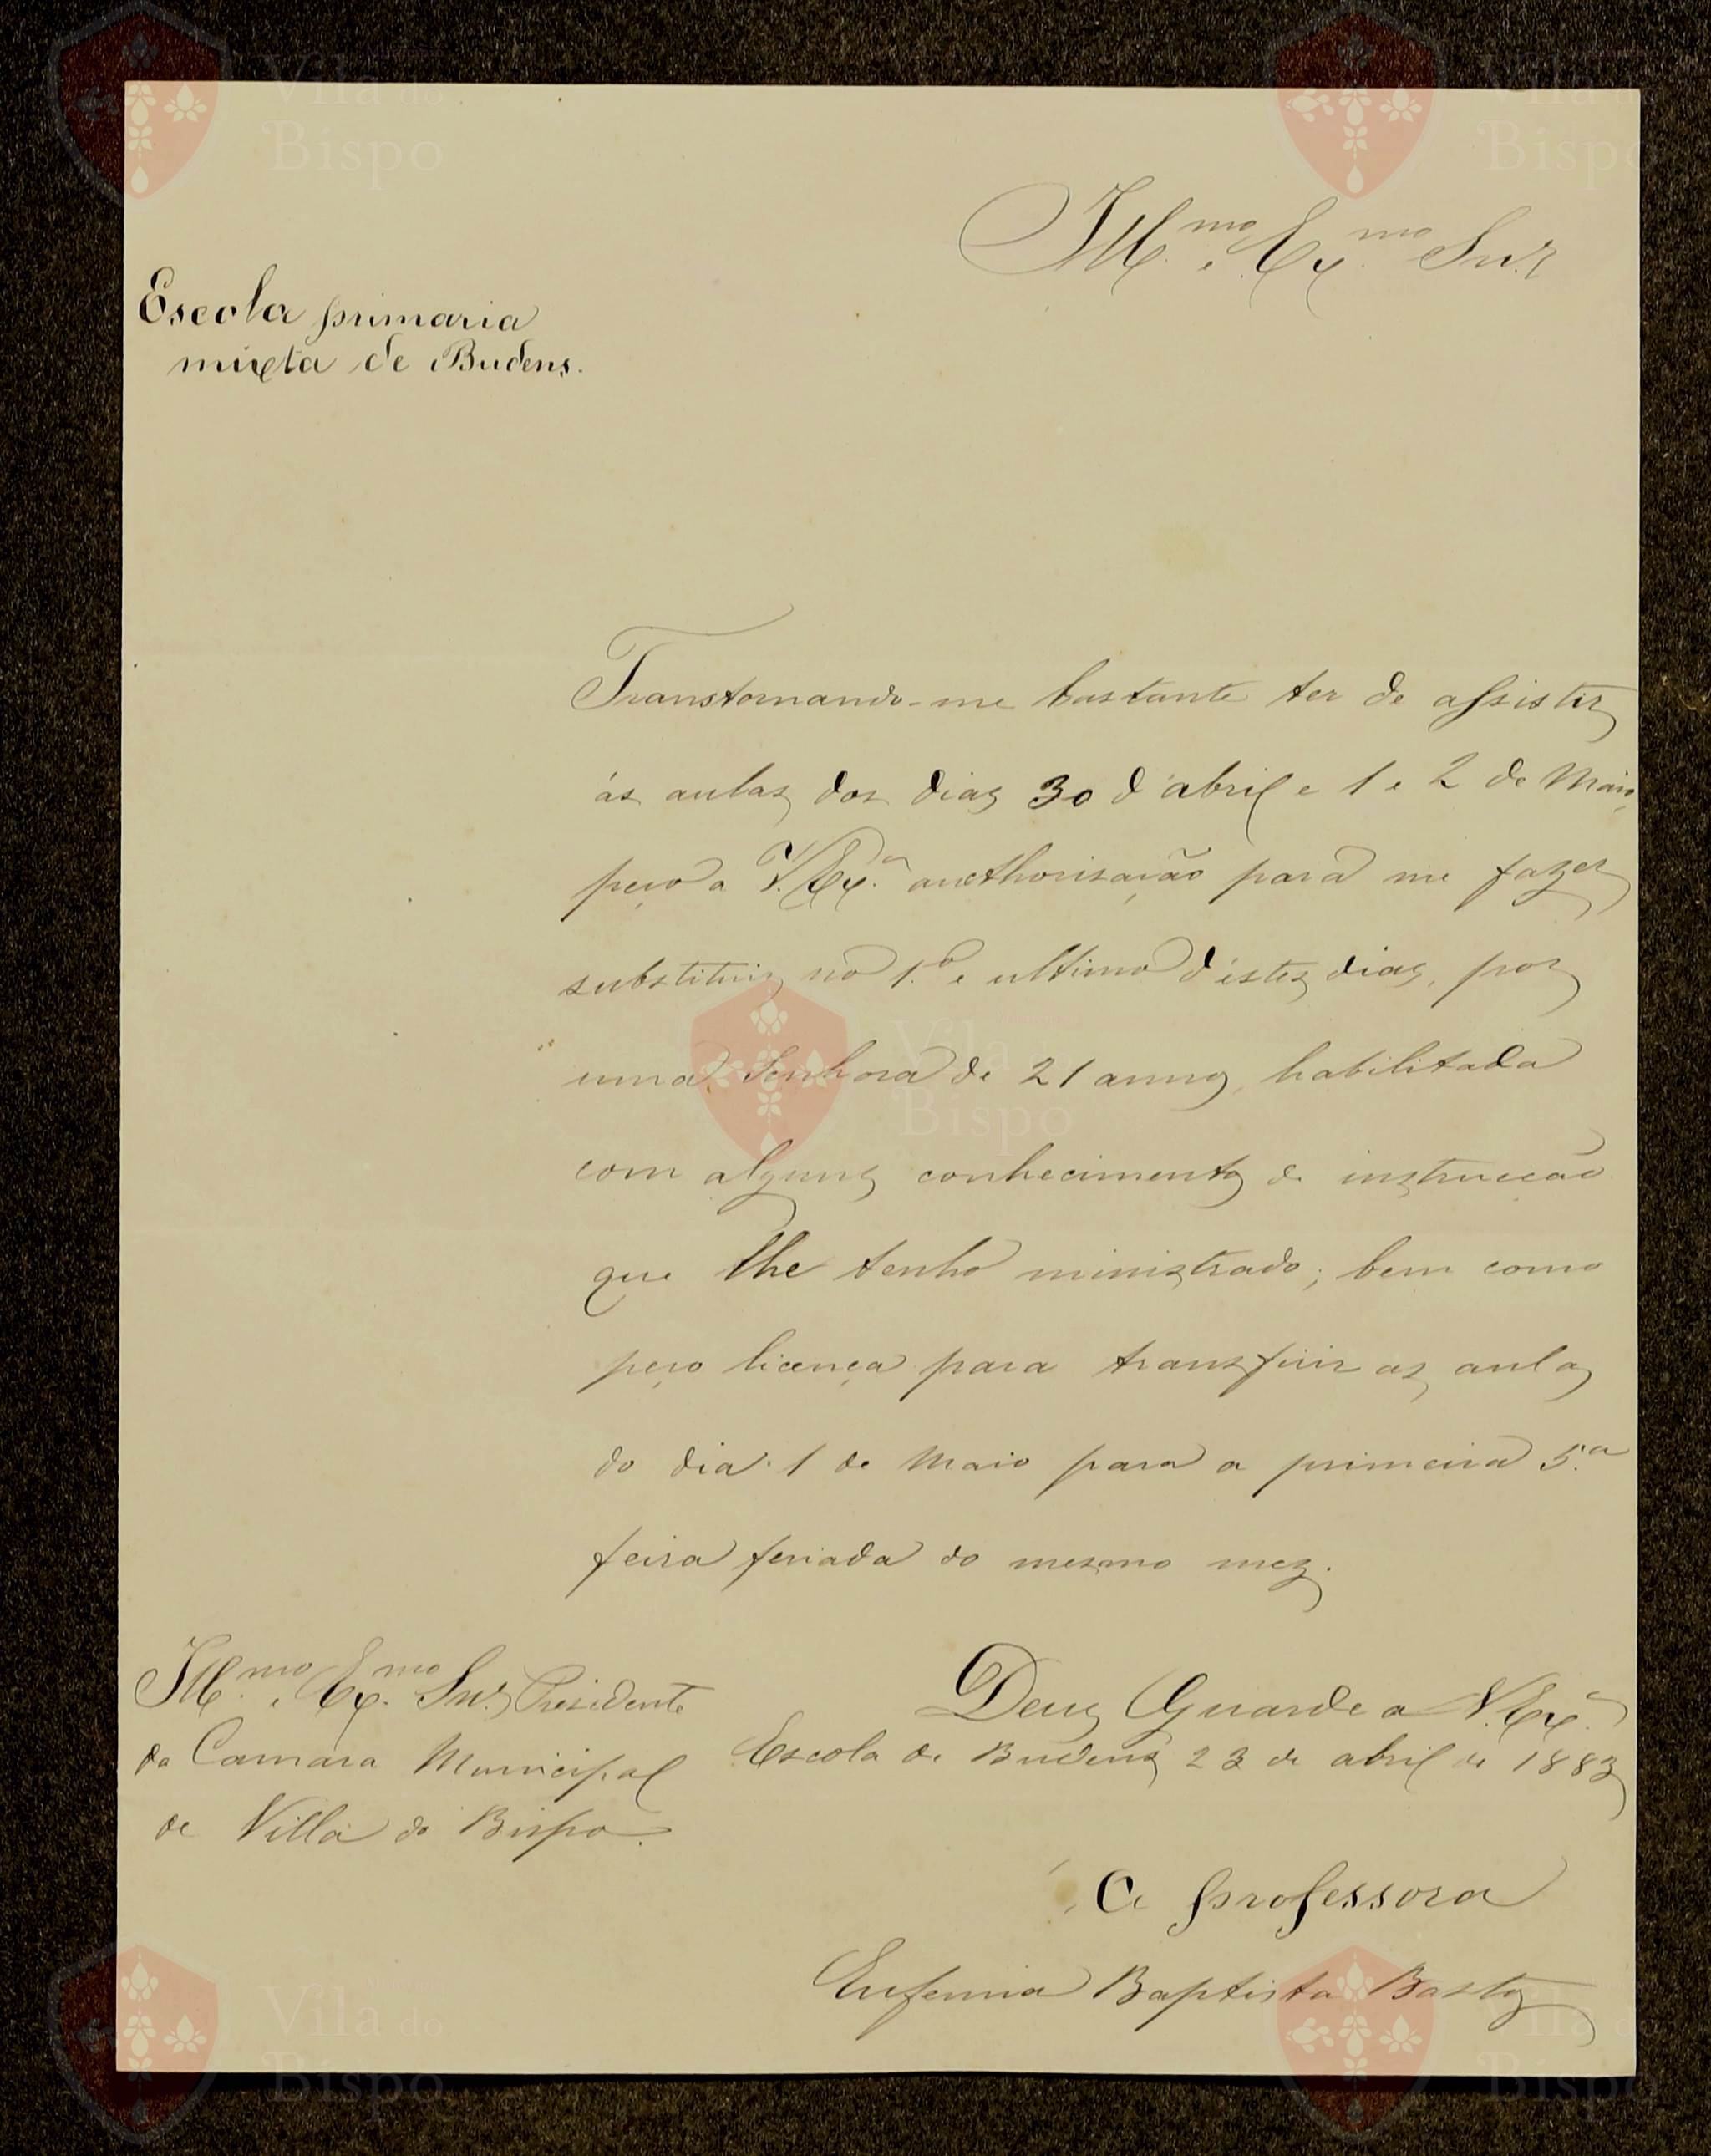 Ill.mo e Ex.mo Snr.
Escola primaria
mixta de Budens.
Transtornando-me bastante ter de assistir
ás aulas dos dias 30 d'abril e 1 e 2 de Maio,
peço a V. Ex.ª aucthorisação para me fazer
substituir no 1.º e ultimo d'estes dias, por
uma Senhora de 21 annos, habilitada
com alguns conhecimentos de instrucção
que lhe tenho ministrado; bem como
peço licença para transferir as aulas
do dia 1 de Maio para a primeira 5.ª
feira feriada do mesmo mez.
Deus Guarde a V. Ex.ª
Escola de Budens 23 de abril de 1883
Ill.mo e Ex.mo Snr. Presidente
da Camara Municipal
de Villa do Bispo.
A professora
Eufemia Baptista Bastos
Vila do
Bispo
Vila do
Bispo
Vila do
Bispo
Vila do
Bispo
Vila do
Bispo